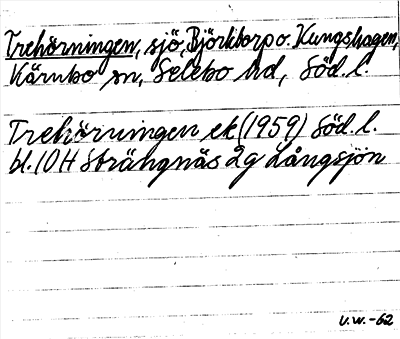 Trehörningen, sjö, Björktorp o. Kungshagen,
Kärnbo sn, Selebo hd, Söd. l.
Trehörningen ek (1959) Söd. l.
bl. 10H Strängnäs 2g Långsjön
V.W. -62